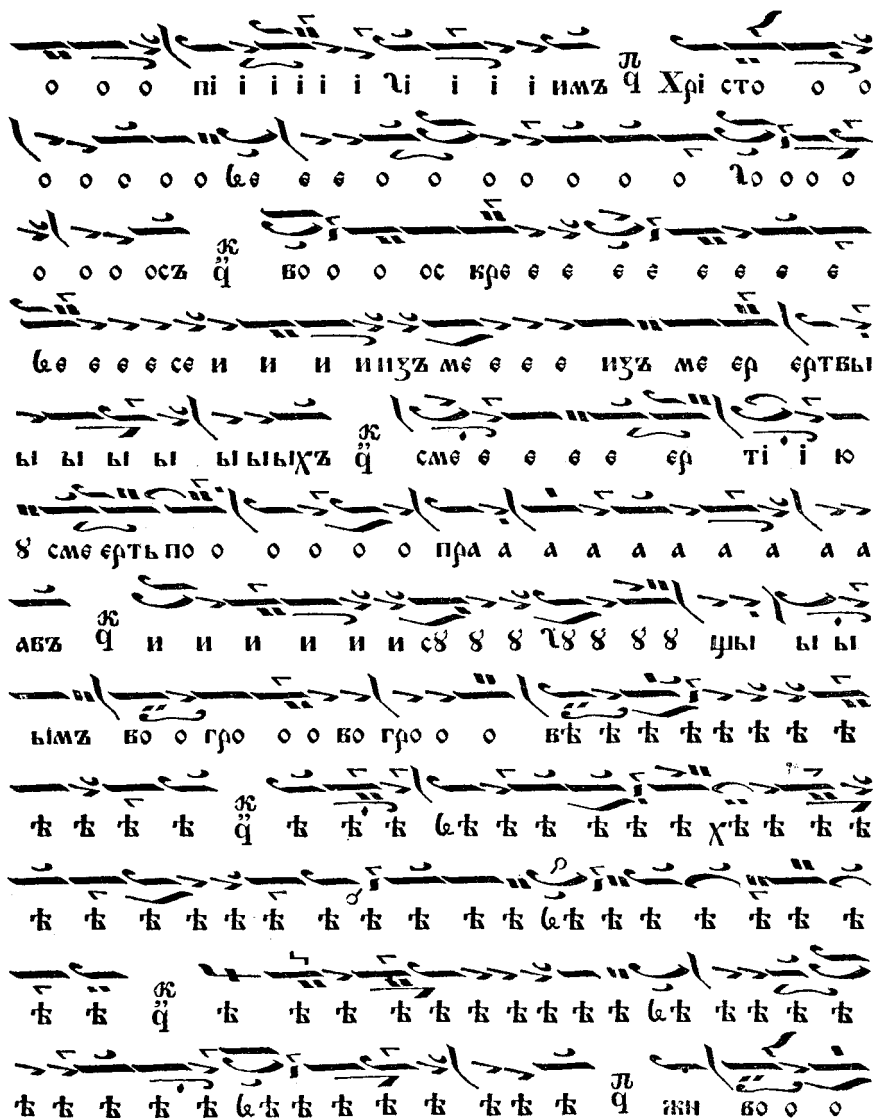 о о о пі і і і і і λі і і і имъ п҃ q Хрі сто о о
о о о о о ѵе е е о о о о о о о λо о о о
о о о осъ к q во о о ос кре е е е е е е е е
ѵе е е е се и и и иизъ ме е е е изъ ме ер ертвы
ы ы ы ы ы ыыхъ к q сме е е е е ер ті і ю
ꙋ сме ерть по о о о о о пра а а а а а а а а
авъ к q и и и и и и сꙋ ꙋ ꙋ λꙋ ꙋ ꙋ ꙋ щы ы ы
ыімъ во о гро о о во гро о о вѣ ѣ ѣ ѣ ѣ ѣ ѣ ѣ
ѣ ѣ ѣ ѣ к q ѣ ѣ ѣ ѵѣ ѣ ѣ ѣ ѣ хѣ ѣ ѣ ѣ
ѣ ѣ ѣ ѣ ѣ ѣ ѣ ѣ ѣ ѣ ѣ ѵѣ ѣ ѣ ѣ ѣ ѣ ѣ
ѣ ѣ к q ѣ ѣ ѣ ѣ ѣ ѣ ѣ ѣ ѣ ѣ ѵѣ ѣ ѣ ѣ ѣ
ѣ ѣ ѣ ѣ ѣ ѵѣ ѣ ѣ ѣ ѣ ѣ ѣ ѣ ѣ п q жи во о о